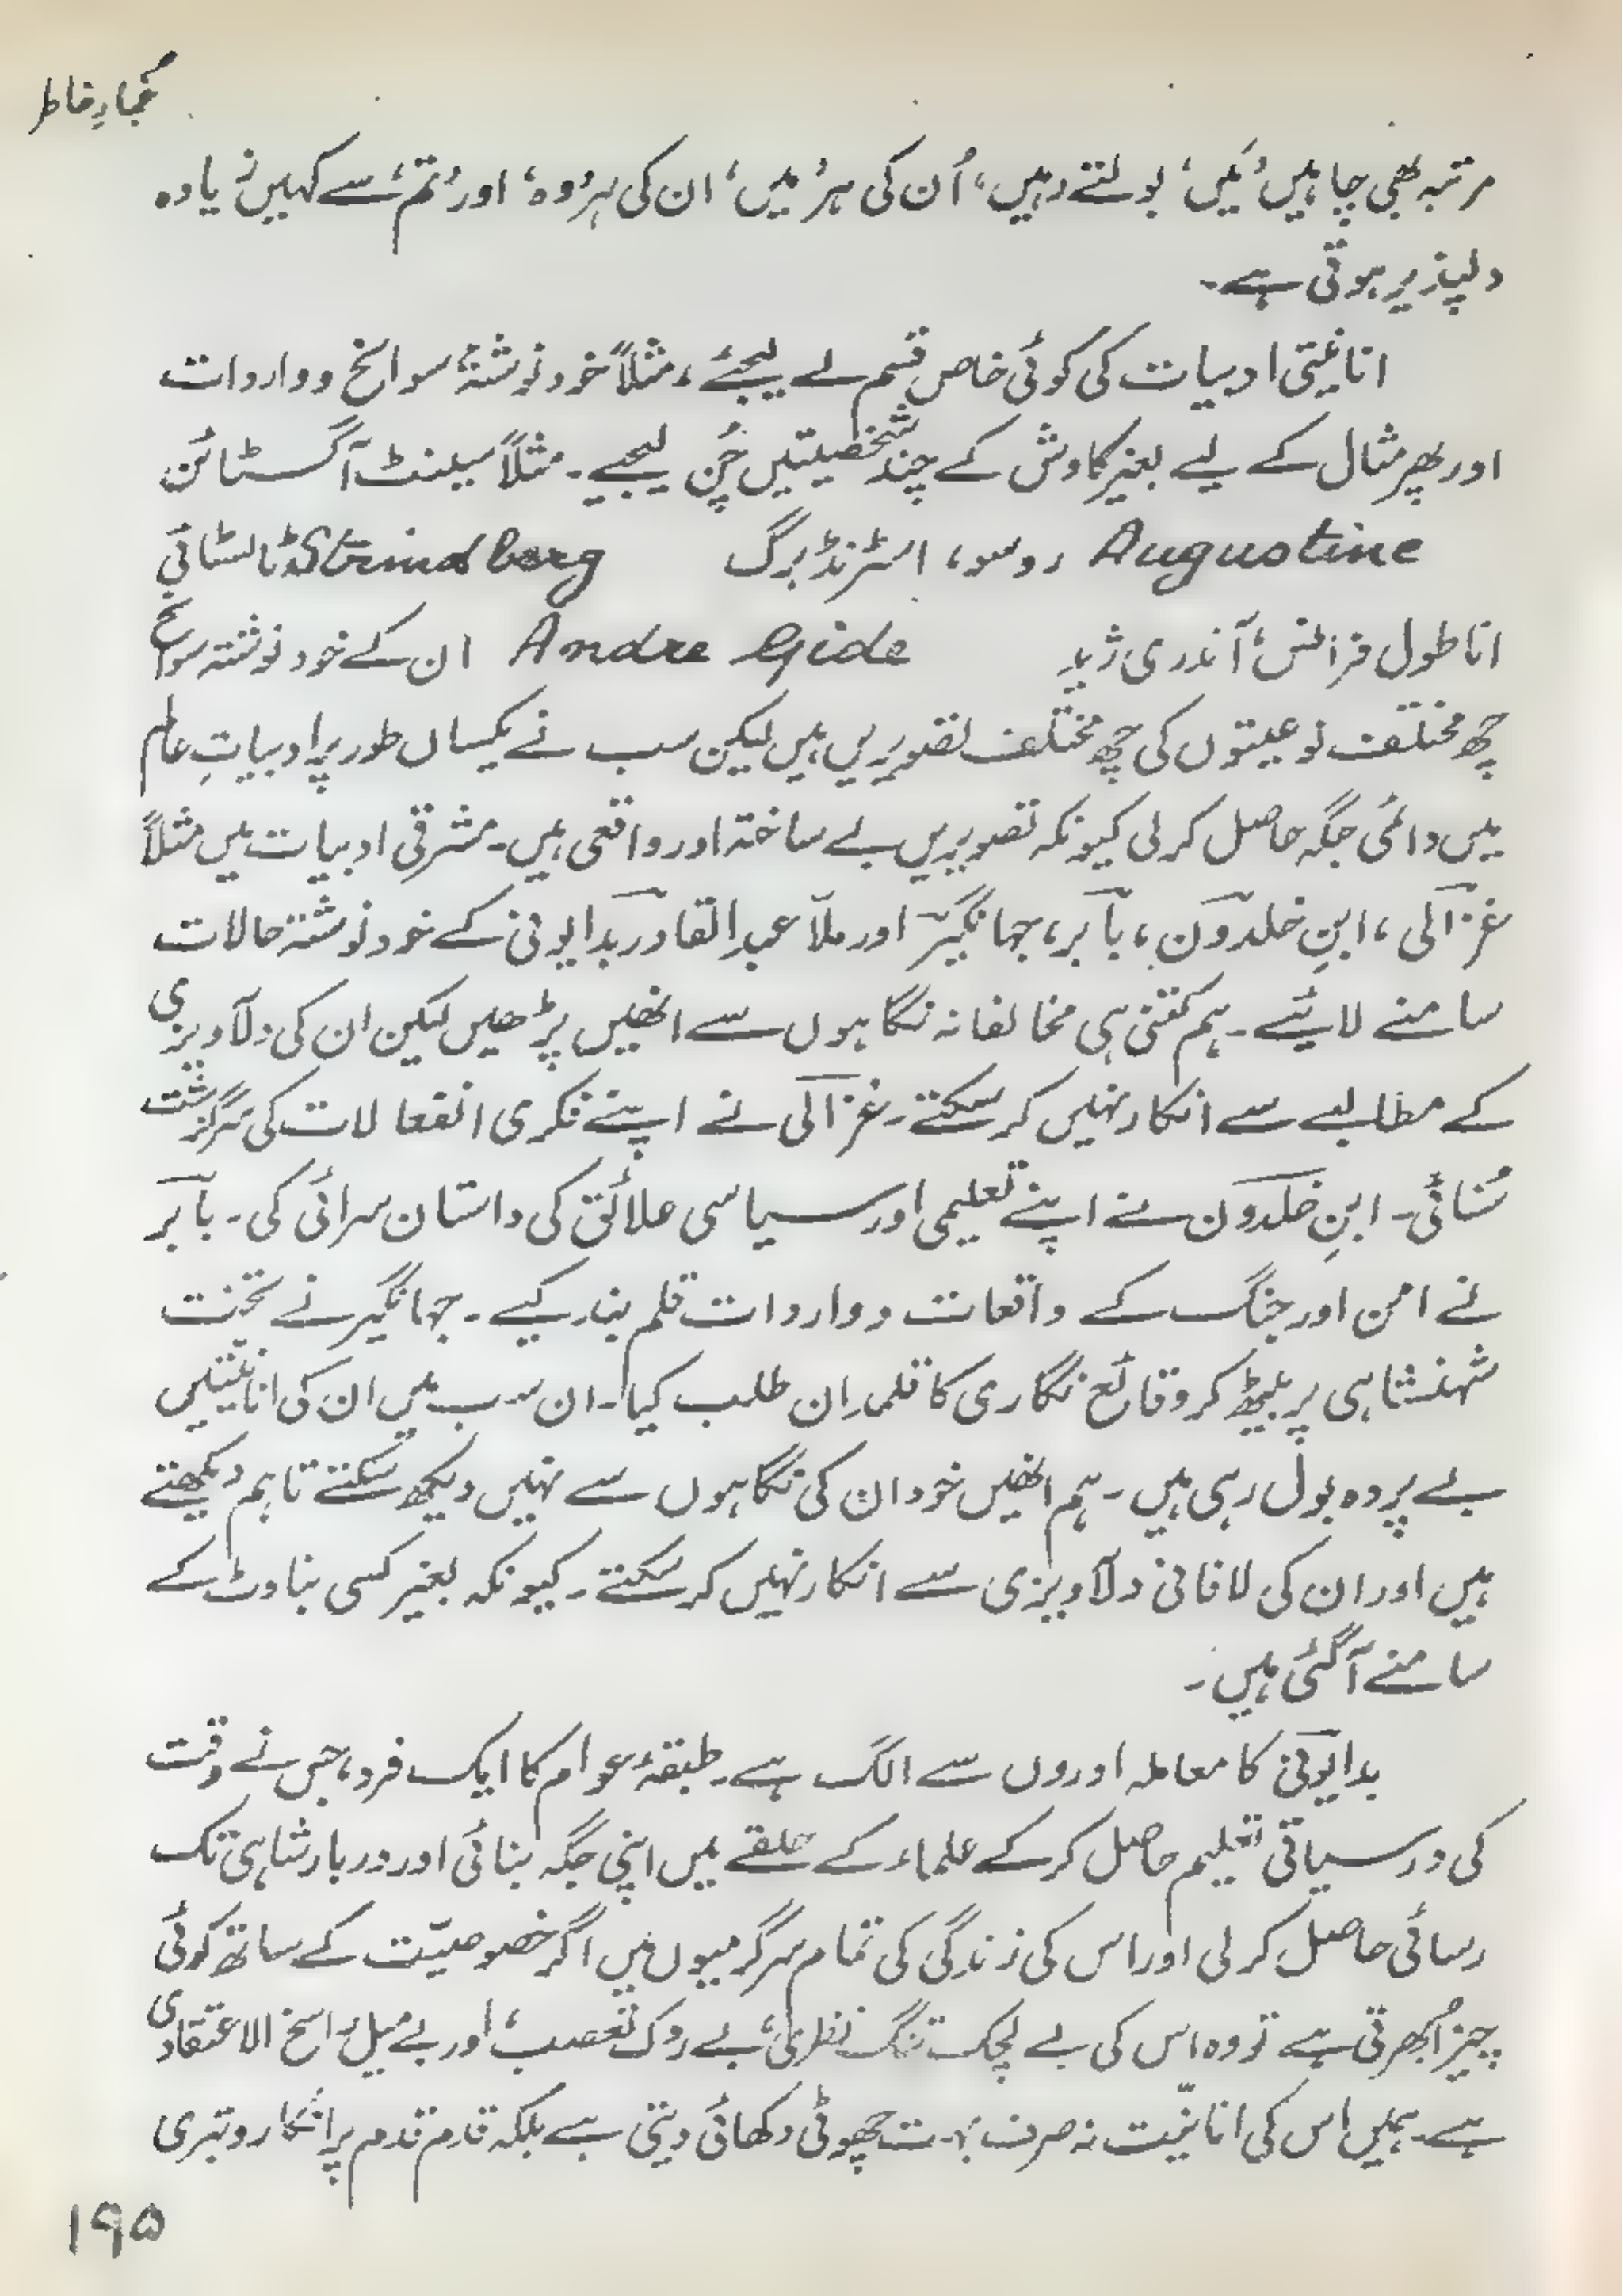 غُبارِ خاطر
مرتبہ بھی چاہیں ’مَیں‘ بولتے رہیں، اُن کی ہر ’میں‘، ان کی ہر ’وہ‘، اور ’تم‘ سے کہیں زیادہ
دلپذیر ہوتی ہے۔
انانیتی ادبیات کی کوئی خاص قسم لے لیجئے، مثلاً خود نوشتۂ سوانح و واردات
اور پھر مثال کے لیے بغیر کاوش کے چند شخصیتیں چُن لیجیے۔ مثلاً سینٹ آگسٹائن
Augustine روسو، اسٹرنڈبرگ Strindberg ٹالسٹائی
اناطول فرانس، آندری ژید Andre Gide ان کے خود نوشتہ سوانح
چھ مختلف نوعیتوں کی چھ مختلف تصویریں ہیں لیکن سب نے یکساں طور پر ادبیاتِ عالم
میں دائمی جگہ حاصل کر لی کیونکہ تصویریں بے ساختہ اور واقعی ہیں۔ مشرقی ادبیات میں مثلاً
غزالی، ابنِ خلدون، بابر، جہانگیر اور ملّا عبدالقادر بدایونی کے خود نوشتہ حالات
سامنے لائیے۔ ہم کتنی ہی مخالفانہ نگاہوں سے انھیں پڑھیں لیکن ان کی دلآویزی
کے مطالبے سے انکار نہیں کر سکتے۔ غزالی نے اپنے فکری انفعالات کی سرگزشت
سُنائی۔ ابنِ خلدون نے اپنے تعلیمی اور سیاسی علائق کی داستان سرائی کی۔ بابر
نے امن اور جنگ کے واقعات و واردات قلم بند کیے۔ جہانگیر نے تخت
شہنشاہی پر بیٹھ کر وقائع نگاری کا قلمدان طلب کیا۔ ان سب میں ان کی انانیتیں
بے پردہ بول رہی ہیں۔ ہم انھیں خود ان کی نگاہوں سے نہیں دیکھ سکتے تاہم دیکھتے
ہیں اور ان کی لافانی دلآویزی سے انکار نہیں کر سکتے۔ کیونکہ بغیر کسی بناوٹ کے
سامنے آگئی ہیں۔
بدایونی کا معاملہ اوروں سے الگ ہے۔ طبقۂ عوام کا ایک فرد، جس نے وقت
کی درسیاتی تعلیم حاصل کر کے علماء کے حلقے میں اپنی جگہ بنائی اور دربار شاہی تک
رسائی حاصل کر لی اور اس کی زندگی کی تمام سرگرمیوں میں اگر خصوصیّت کے ساتھ کوئی
چیز اُبھرتی ہے تو وہ اس کی بے لچک تنگ نظری، بے روک تعصب، اور بے میل راسخ الاعتقادی
ہے۔ ہمیں اس کی انانیّت نہ صرف بہت چھوٹی دکھائی دیتی ہے بلکہ قدم قدم پر انکار و تبرّی
۱۹۵